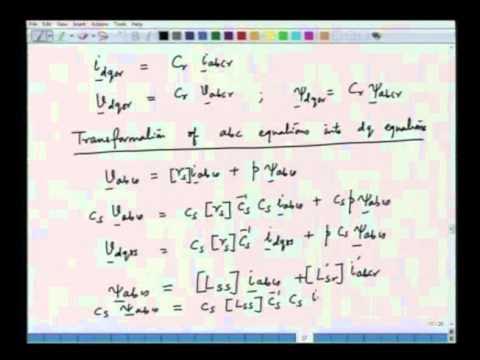 i_dqor = C_r i_abcr
v_dqor = C_r v_abcr ; Ψ_dqor = C_r Ψ_abcr
Transformation of abc equations into dq equations
v_abcs = [r_s] i_abcs + p Ψ_abcs
C_s v_abcs = C_s [r_s] C_s^-1 C_s i_abcs + C_s p Ψ_abcs
v_dqos = C_s [r_s] C_s^-1 i_dqos + p C_s Ψ_abcs
Ψ_abcs = [L_ss] i_abcs + [L'_sr] i'_abcr
C_s Ψ_abcs = C_s [L_ss] C_s^-1 C_s i